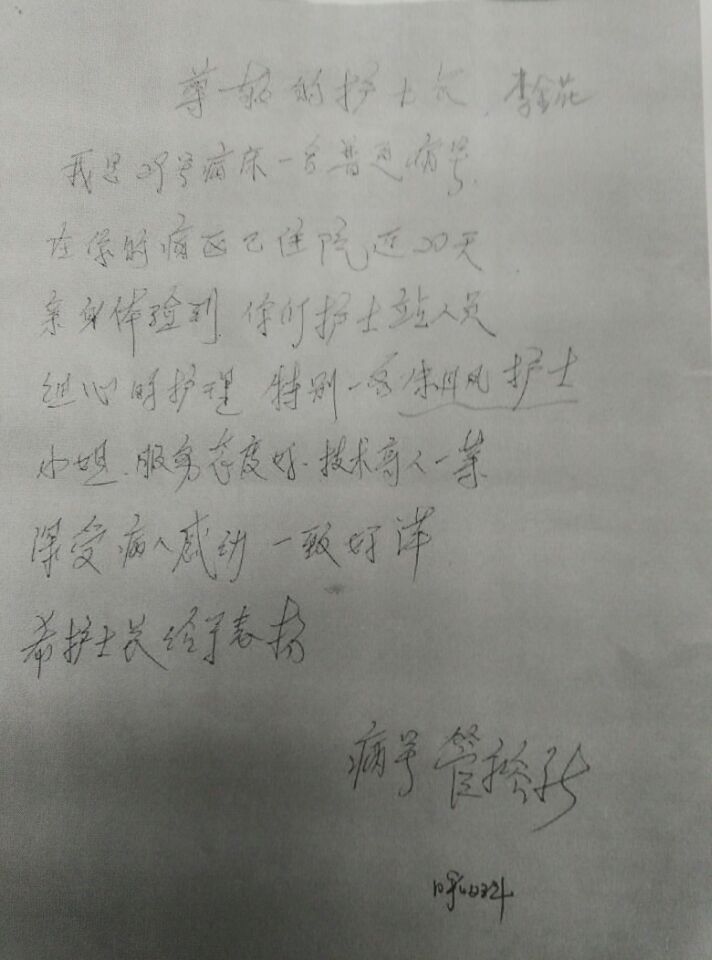 尊敬的护士长 李
我是29号病床一名普通病号
在你的病区已住院近20天
亲身体验到 你们护士站人员
细心的护理 特别一名朱丹凤护士
小姐.服务态度好.技术高人一等
深受病人感动 一致好评
希护士长给予表扬
病号 管
呼吸科